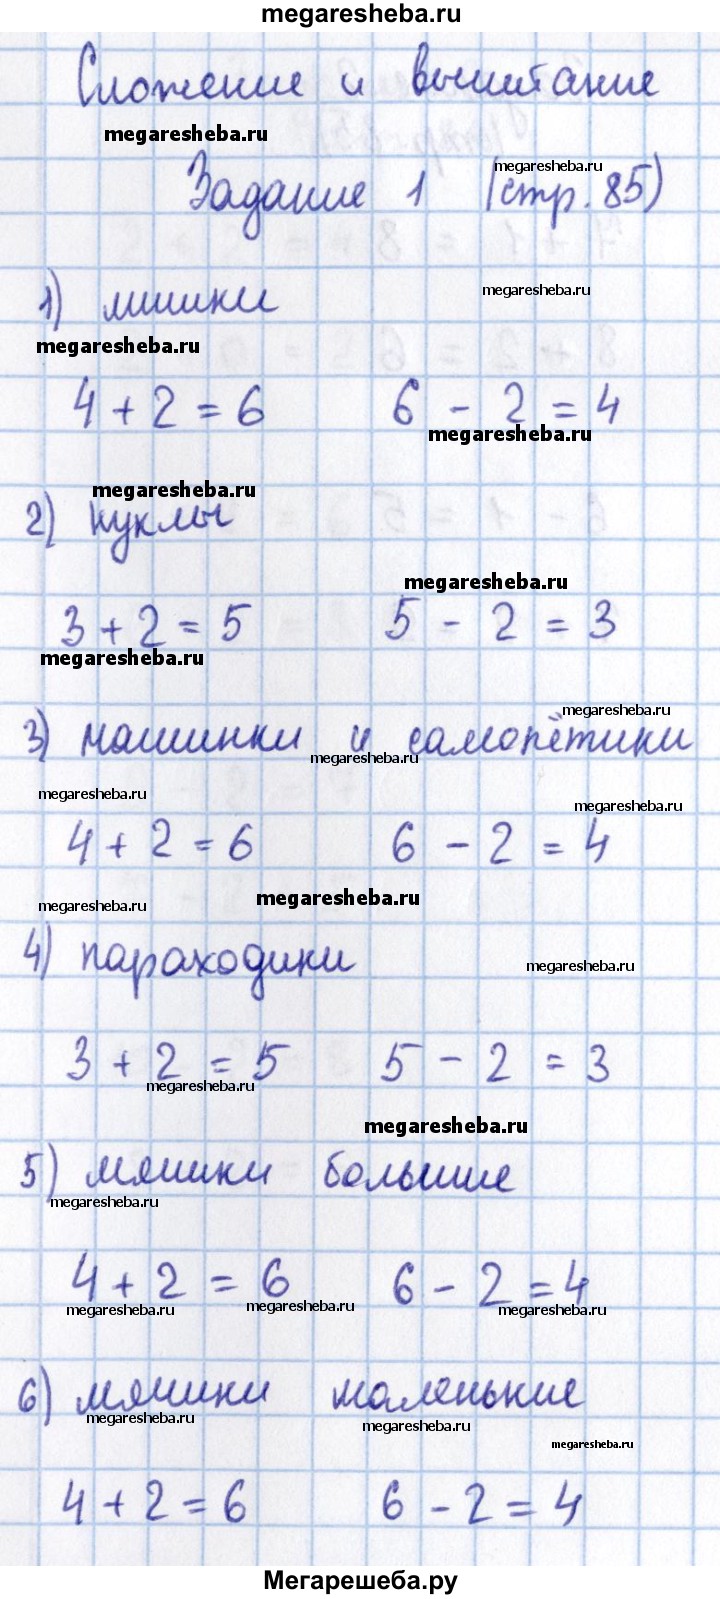 megaresheba.ru
Сложение и вычитание
megaresheba.ru
Задание 1 (стр. 85)
megaresheba.ru
1) мишки
megaresheba.ru
megaresheba.ru
4 + 2 = 6 6 - 2 = 4
megaresheba.ru
megaresheba.ru
2) куклы
megaresheba.ru
3 + 2 = 5 5 - 2 = 3
megaresheba.ru
megaresheba.ru
3) машинки и самолётики
megaresheba.ru
megaresheba.ru
megaresheba.ru
4 + 2 = 6 6 - 2 = 4
megaresheba.ru
megaresheba.ru
4) параходики
megaresheba.ru
3 + 2 = 5 5 - 2 = 3
megaresheba.ru
megaresheba.ru
5) мячики большие
megaresheba.ru
4 + 2 = 6 6 - 2 = 4
megaresheba.ru
megaresheba.ru
megaresheba.ru
6) мячики маленькие
megaresheba.ru
megaresheba.ru
megaresheba.ru
4 + 2 = 6 6 - 2 = 4
Мегарешеба.ру